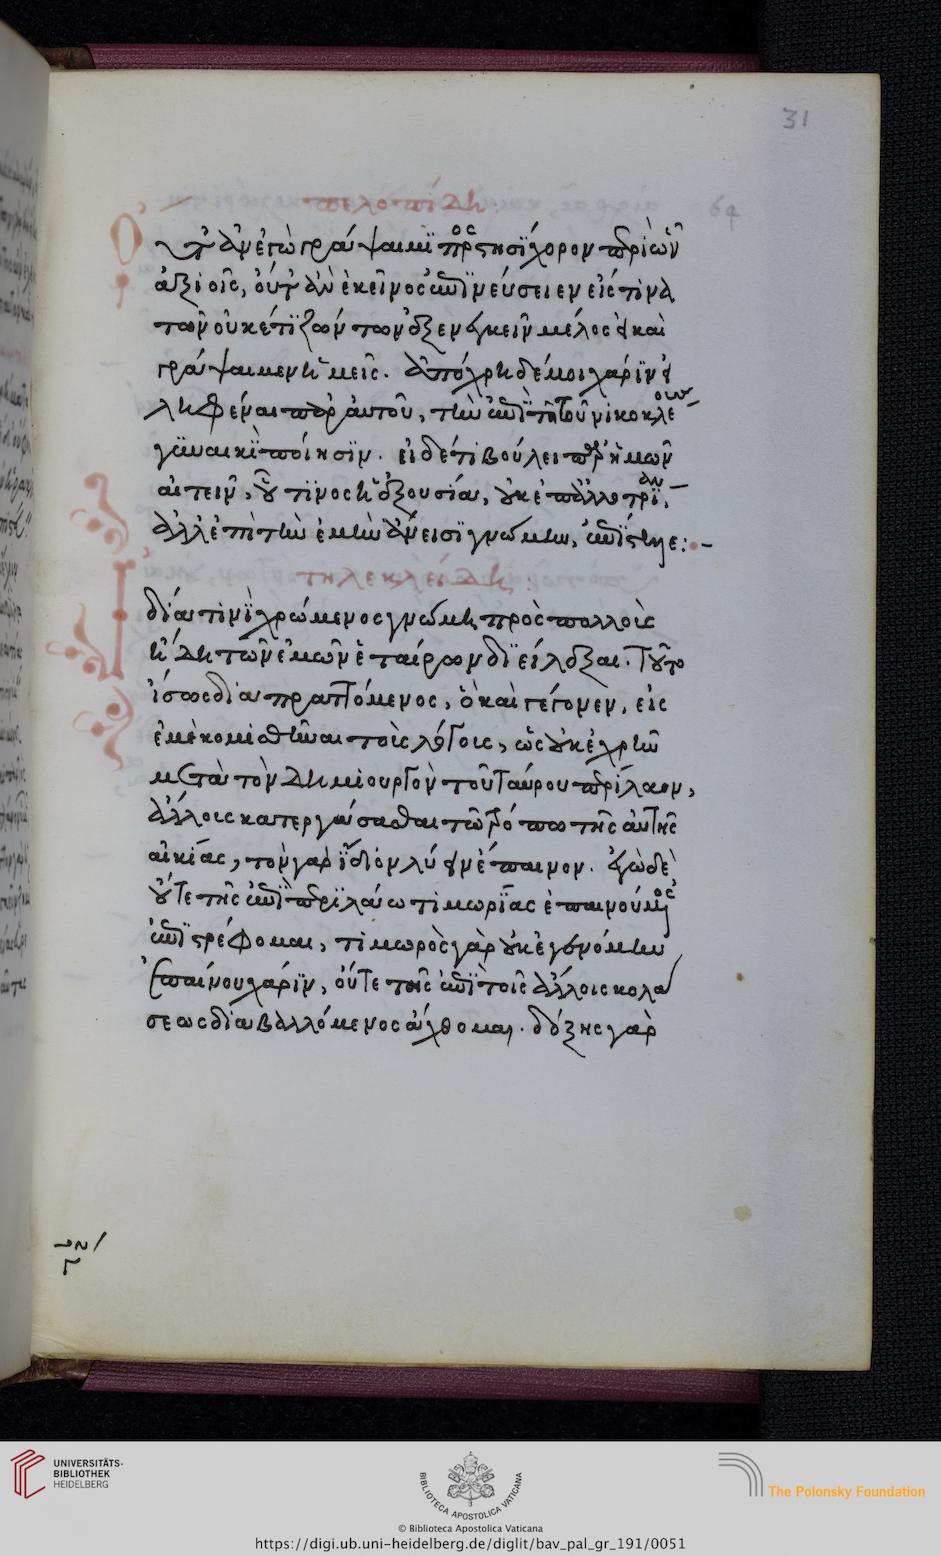 31
64
πελοπίδη
Οὔτ' ἂν ἐγὼ γράψαιμι πρὸς στησίχορον περὶ ὧν
ἀξιοῖς, οὔτ' ἂν ἐκεῖνος ἐπινεύσειεν εἴς τινα
τῶν οὐκέτι ζώντων ἐξενεγκεῖν μέλος ὃ καὶ
γράψαιμεν ἡμεῖς. ἀπόχρη δέ μοι χάριν
ληφθῆναι παρ' αὐτοῦ, τὴν ἐπὶ τῇ τοῦ νικοκλέους
γυναικὶ ποίησιν. εἰ δέ τι βούλει παρ' ἡμῶν
αἰτεῖν, οὗ τινος ἡ ἐξουσία, οὐκ ἐπ' ἀλλοτρίαν,
ἀλλ' ἐπὶ τὴν ἐμὴν ἄνεισι γνώμην, ἐπίστελλε:
τηλεκλείδη:
Ἰδίᾳ τινὶ χρώμενος γνώμῃ πρὸς πολλοὺς
ἤδη τῶν ἐμῶν ἑταίρων διείλεξαι. τοῦτο
ἴσως διαπραττόμενος, ὃ καὶ γέγονεν, εἰς
ἐμὲ κομισθῆναι τοὺς λόγους, ὡς οὐκ ἐχρῆν
μετὰ τὸν δημιουργὸν τοῦ ταύρου περίλαον,
ἄλλοις κατεργάσασθαι τῷ τρόπῳ τῆς αὐτῆς
αἰκίας, τὸν γὰρ ἴδιον λύειν ἔπαινον. ἐγὼ δὲ
οὔτε τῆς ἐπὶ περιλάῳ τιμωρίας ἐπαινούμενος
ἐπιστρέφομαι, τιμωρὸς γὰρ οὐκ ἐγενόμην
ἐπαίνου χάριν, οὔτε τῆς ἐπὶ τοῖς ἄλλοις κολά
σεως διαβαλλόμενος ἄχθομαι. δόξης γὰρ
UNIVERSITÄTS-
BIBLIOTHEK
HEIDELBERG
BIBLIOTECA APOSTOLICA VATICANA
© Biblioteca Apostolica Vaticana
The Polonsky Foundation
https://digi.ub.uni-heidelberg.de/diglit/bav_pal_gr_191/0051